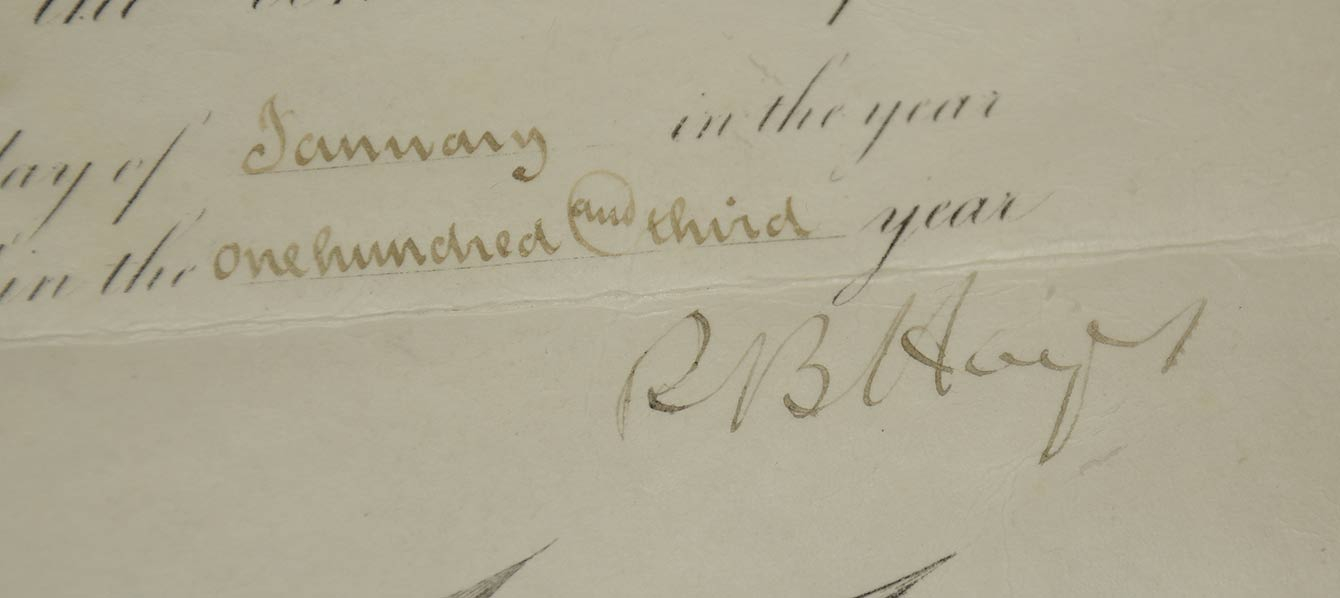 day of January in the year
in the one hundred and third year
R B Hayes